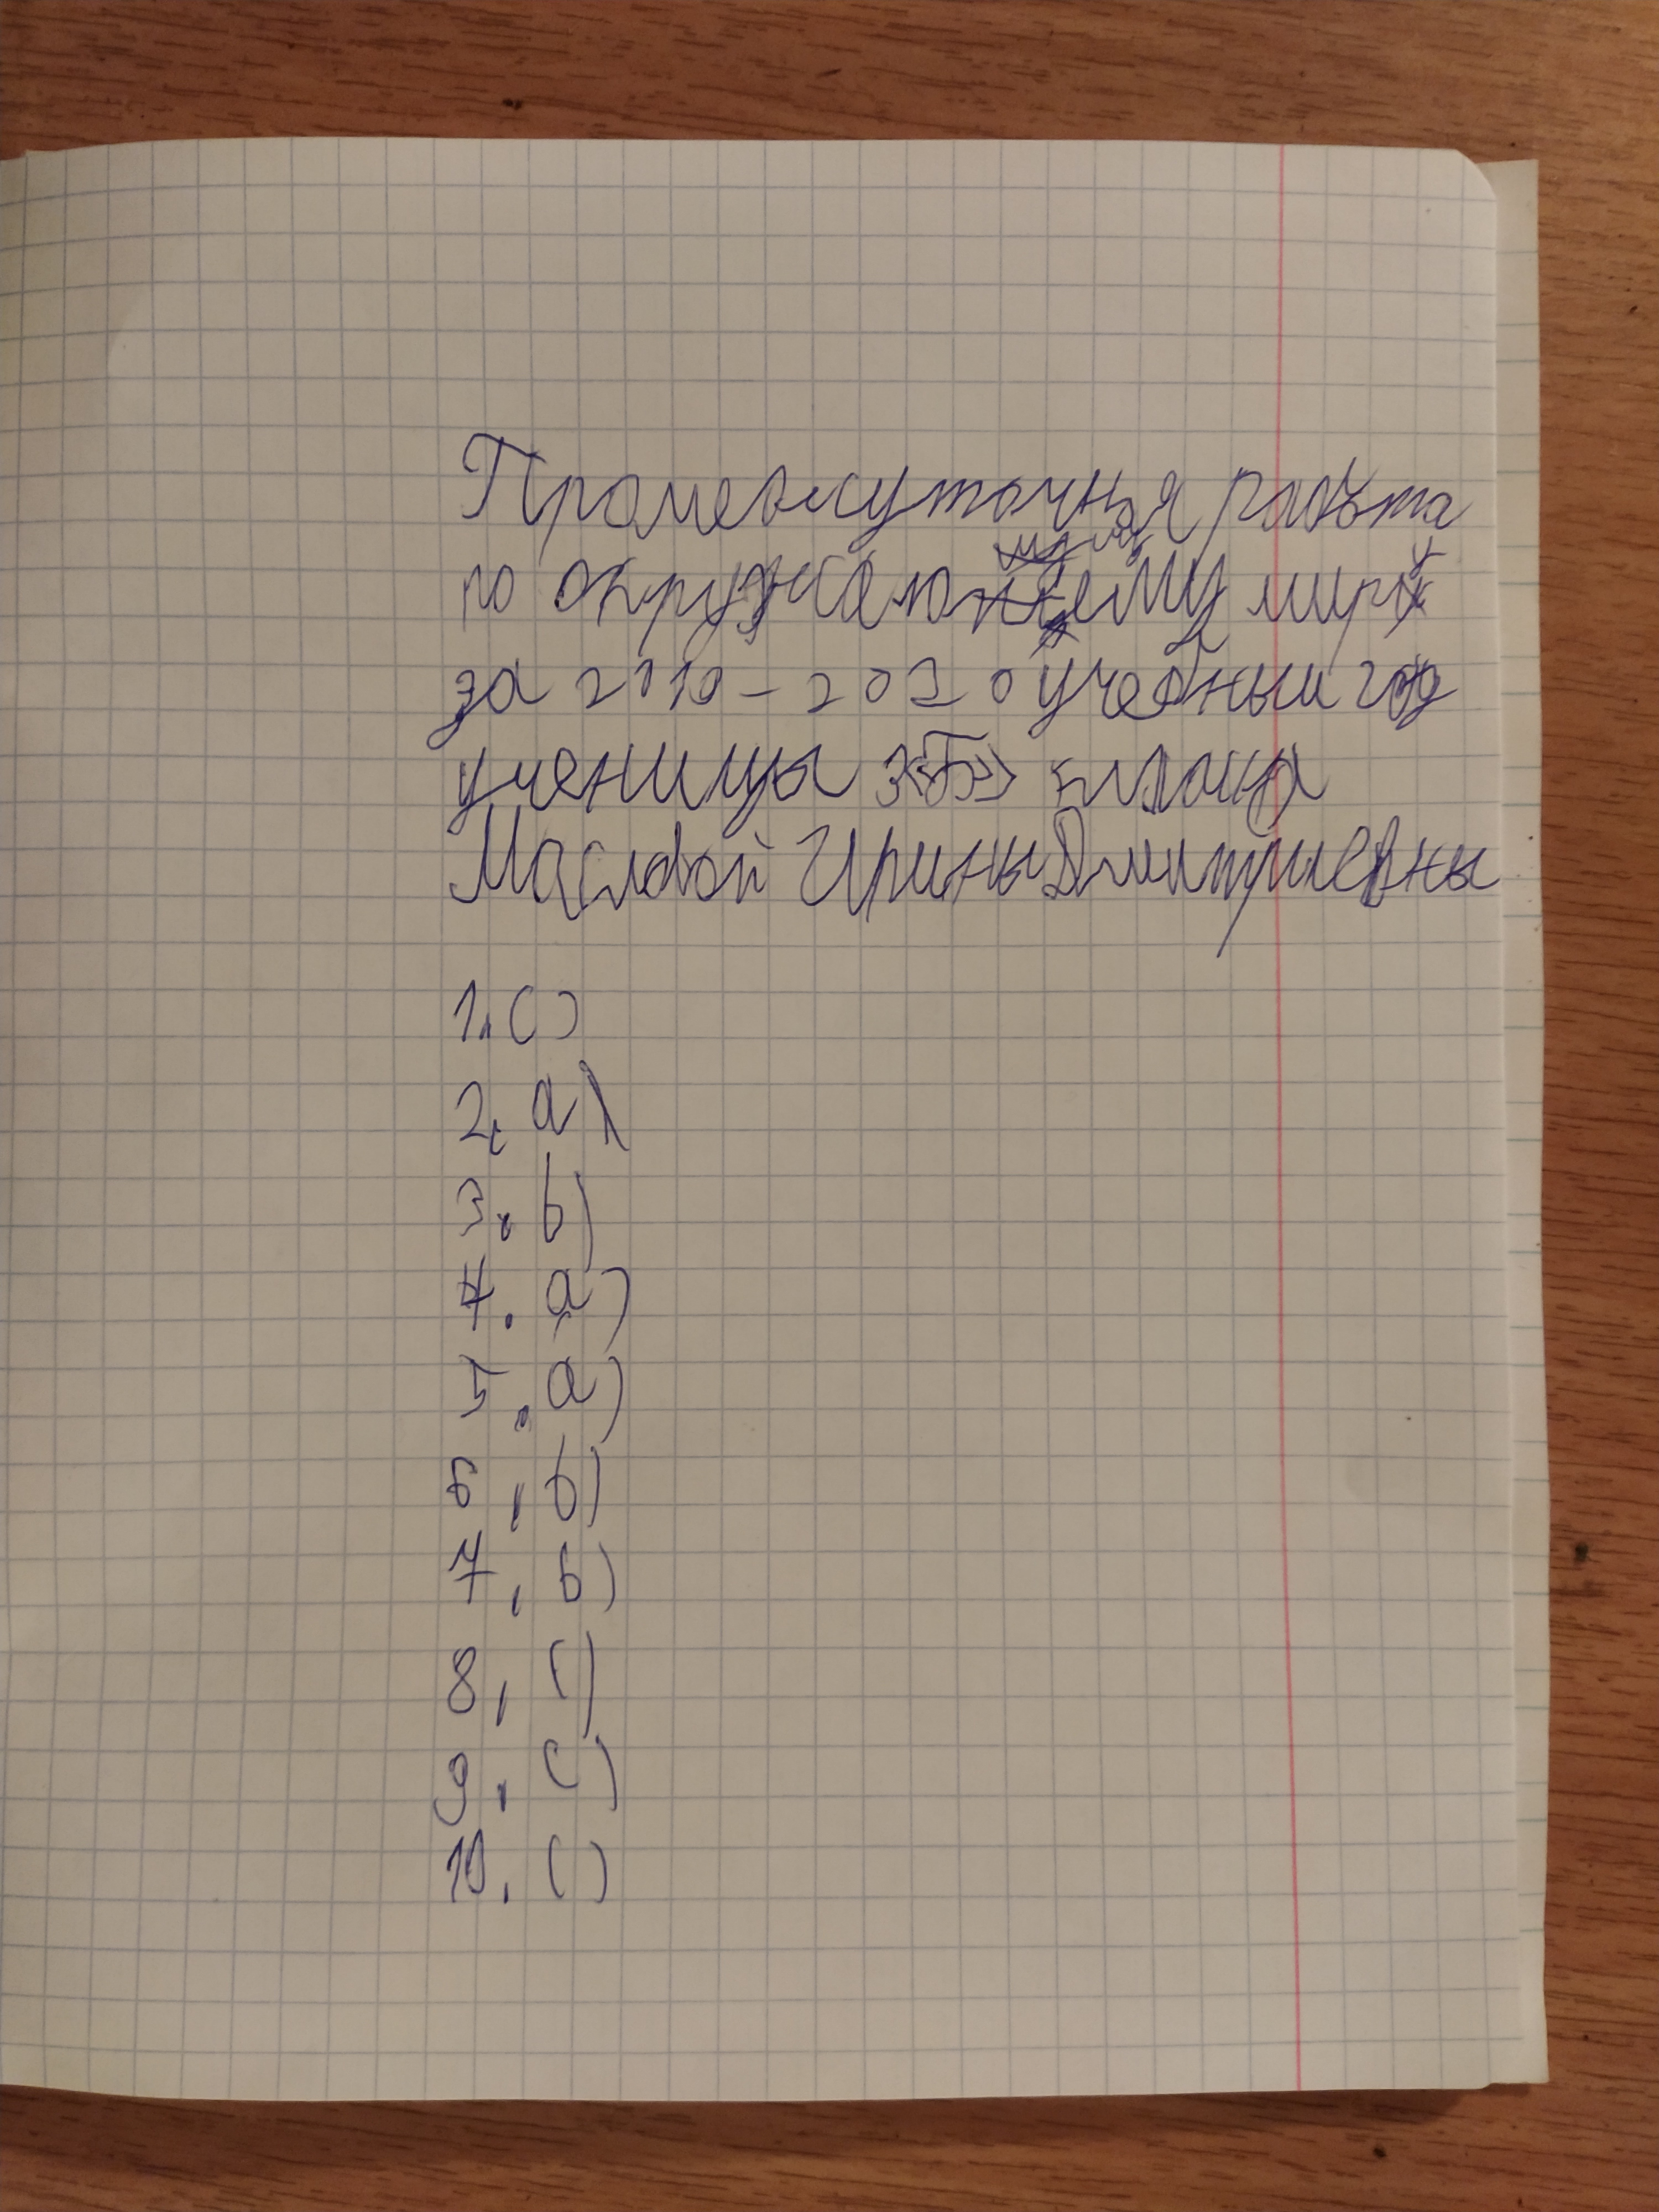 Промежуточная работа
по окружающему миру
за 2019-2020 учебный год
ученицы 3«Б» класса
Масловой Ирины Дмитриевны
1. c)
2. a)
3. b)
4. a)
5. a)
6. b)
7. b)
8. c)
9. c)
10. c)